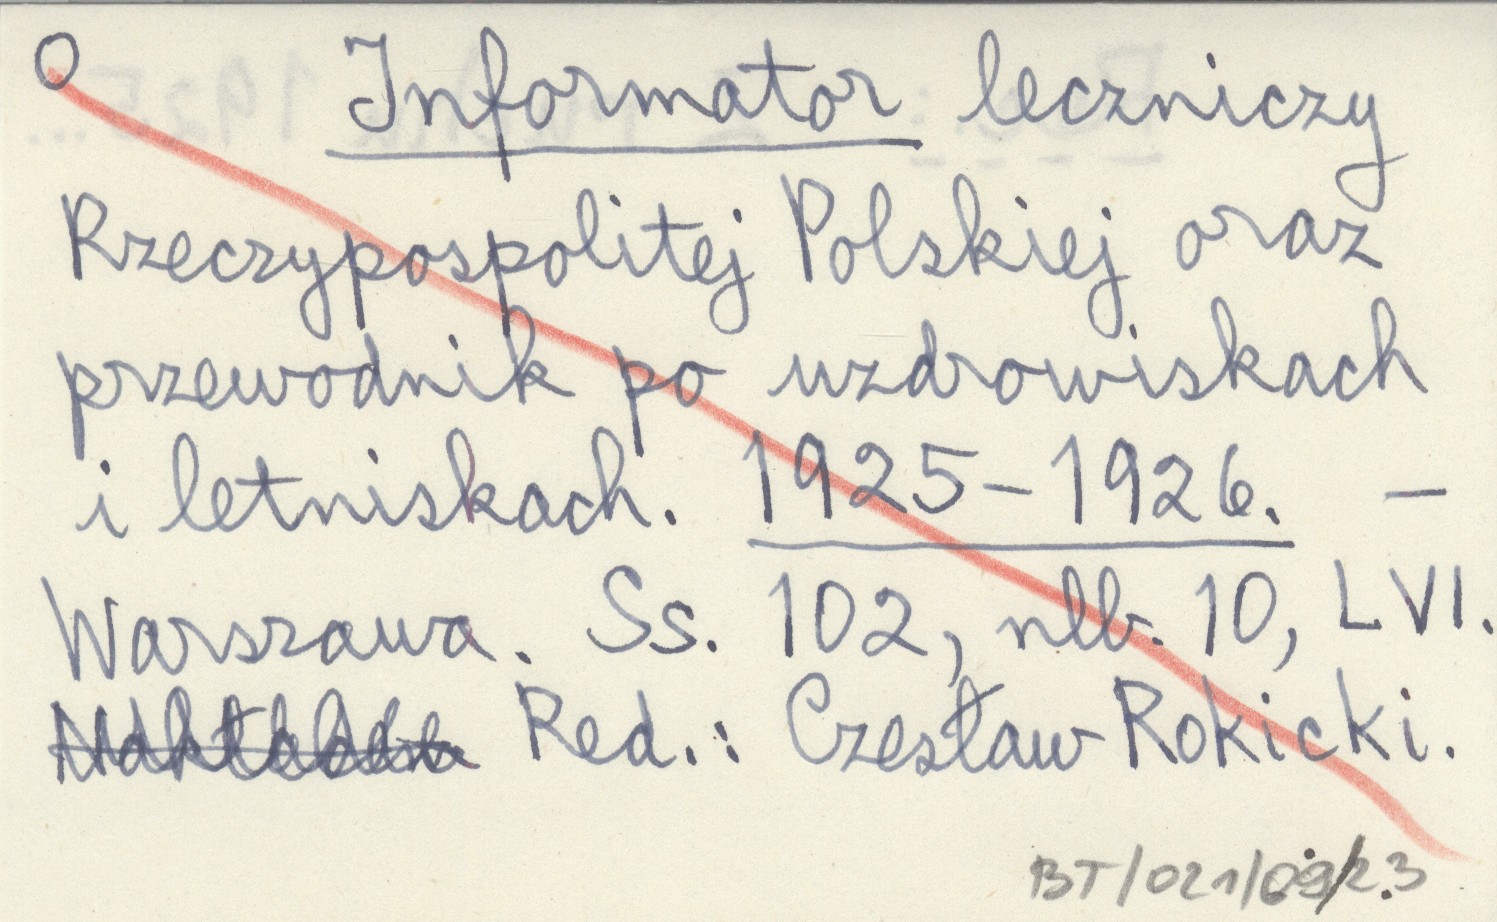 O Informator leczniczy
Rzeczypospolitej Polskiej oraz
przewodnik po uzdrowiskach
i letniskach. 1925-1926. —
Warszawa. Ss. 102, nlb. 10, LVI.
Red.: Czesław Rokicki.
BT/021/69/23